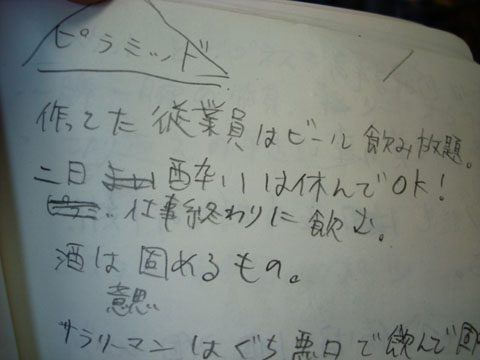 ピラミッド
作ってた 従業員はビール 飲み放題。
二日 酔いは休んでOK!
仕事終わりに飲む。
酒は固めるもの。
意思
サラリーマンはぐち悪口で飲んで固